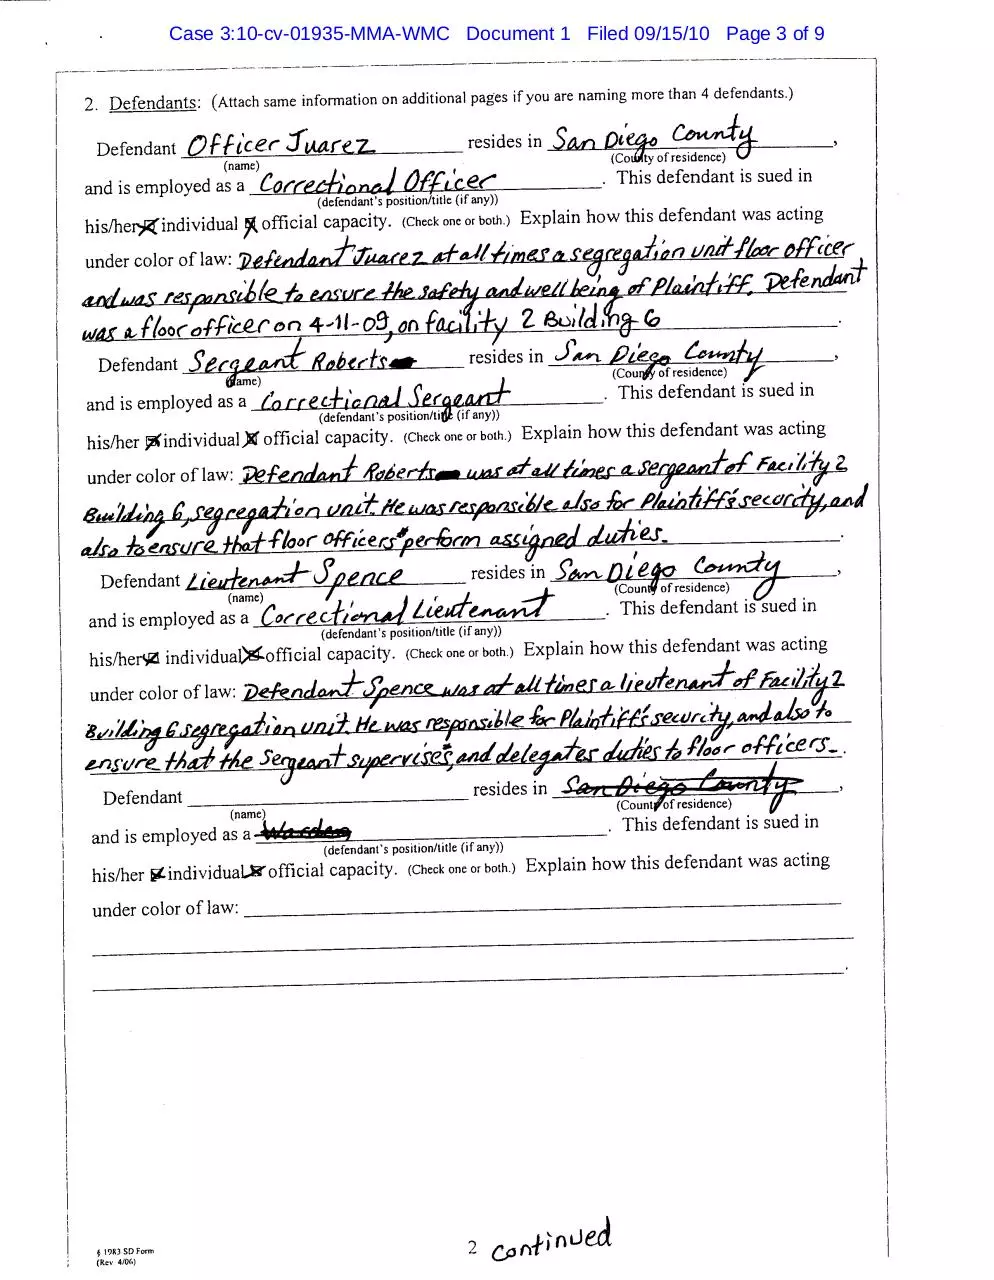 Case 3:10-cv-01935-MMA-WMC Document 1 Filed 09/15/10 Page 3 of 9
2. Defendants: (Attach same information on additional pages if you are naming more than 4 defendants.)
Defendant Officer Juarez resides in San Diego County,
(name) (County of residence)
and is employed as a Correctional Officer. This defendant is sued in
(defendant's position/title (if any))
his/her ☒ individual ☒ official capacity. (Check one or both.) Explain how this defendant was acting
under color of law: Defendant Juarez at all times a segregation unit floor officer
and was responsible to ensure the safety and well being of Plaintiff. Defendant
was a floor officer on 4-11-09, on facility 2 Building 6.
Defendant Sergeant Roberts resides in San Diego County,
(name) (County of residence)
and is employed as a Correctional Sergeant. This defendant is sued in
(defendant's position/title (if any))
his/her ☒ individual ☒ official capacity. (Check one or both.) Explain how this defendant was acting
under color of law: Defendant Roberts was at all times a sergeant of Facility 2
Building 6, segregation unit. He was responsible also for Plaintiff's security, and
also to ensure that floor officers perform assigned duties.
Defendant Lieutenant Spence resides in San Diego County,
(name) (County of residence)
and is employed as a Correctional Lieutenant. This defendant is sued in
(defendant's position/title (if any))
his/her ☒ individual ☒ official capacity. (Check one or both.) Explain how this defendant was acting
under color of law: Defendant Spence was at all times a lieutenant of Facility 2
Building 6 segregation unit. He was responsible for Plaintiff's security, and also to
ensure that the Sergeant supervises, and delegates duties to floor officers.
Defendant resides in San Diego County,
(name) (County of residence)
and is employed as a Warden. This defendant is sued in
(defendant's position/title (if any))
his/her ☒ individual ☒ official capacity. (Check one or both.) Explain how this defendant was acting
under color of law:
§ 1983 SD Form
(Rev 4/06)
2 continued